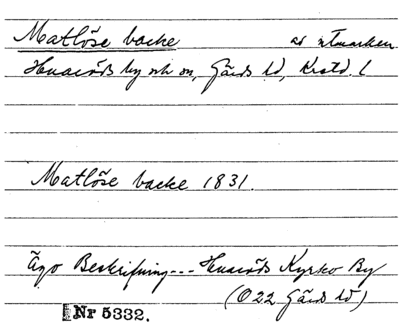 Matlöse backe av utmarken
Huaröds by och sn, Gärds hd, Krstd. l
Matlöse backe 1831.
Ägo Beskrifning --- Huaröds Kyrko By
(O 22 Gärds hd)
Nr 5332.